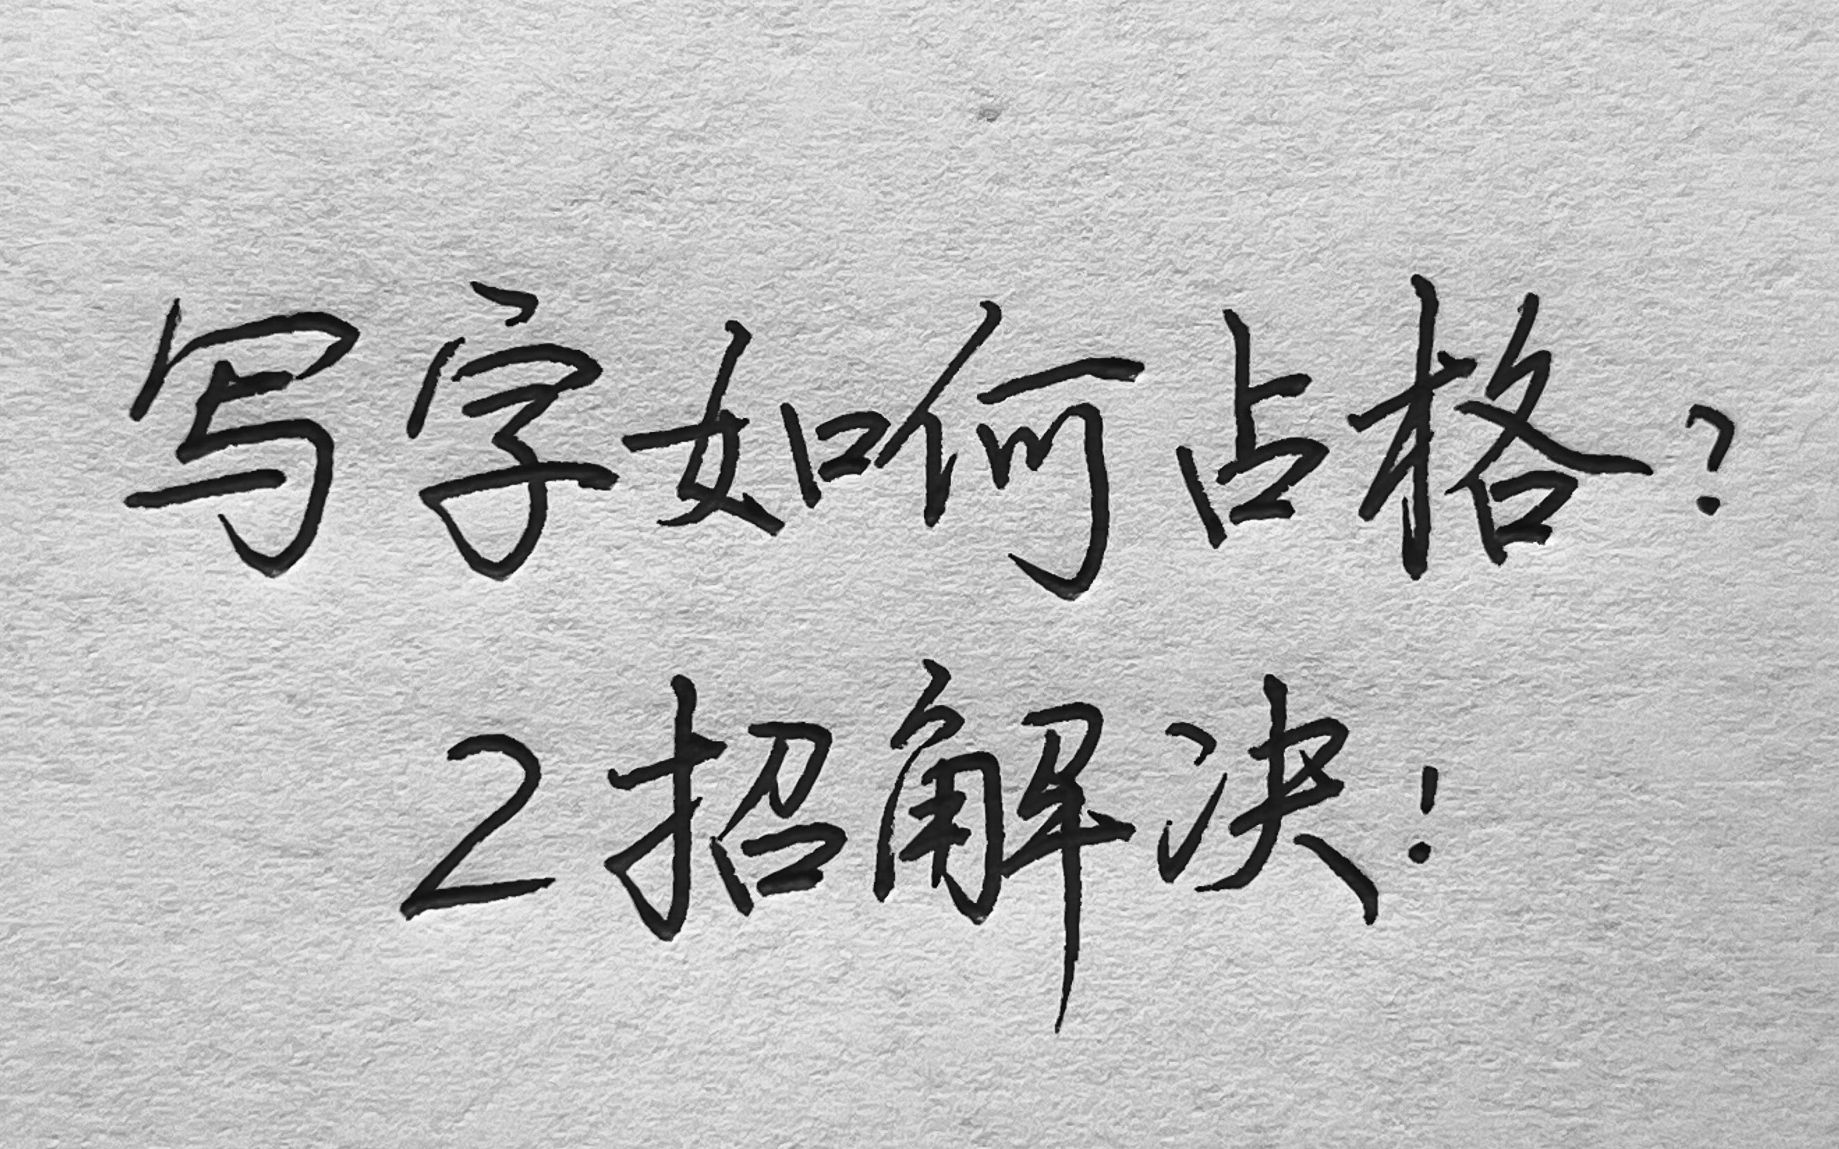 写字如何占格?
2招解决!